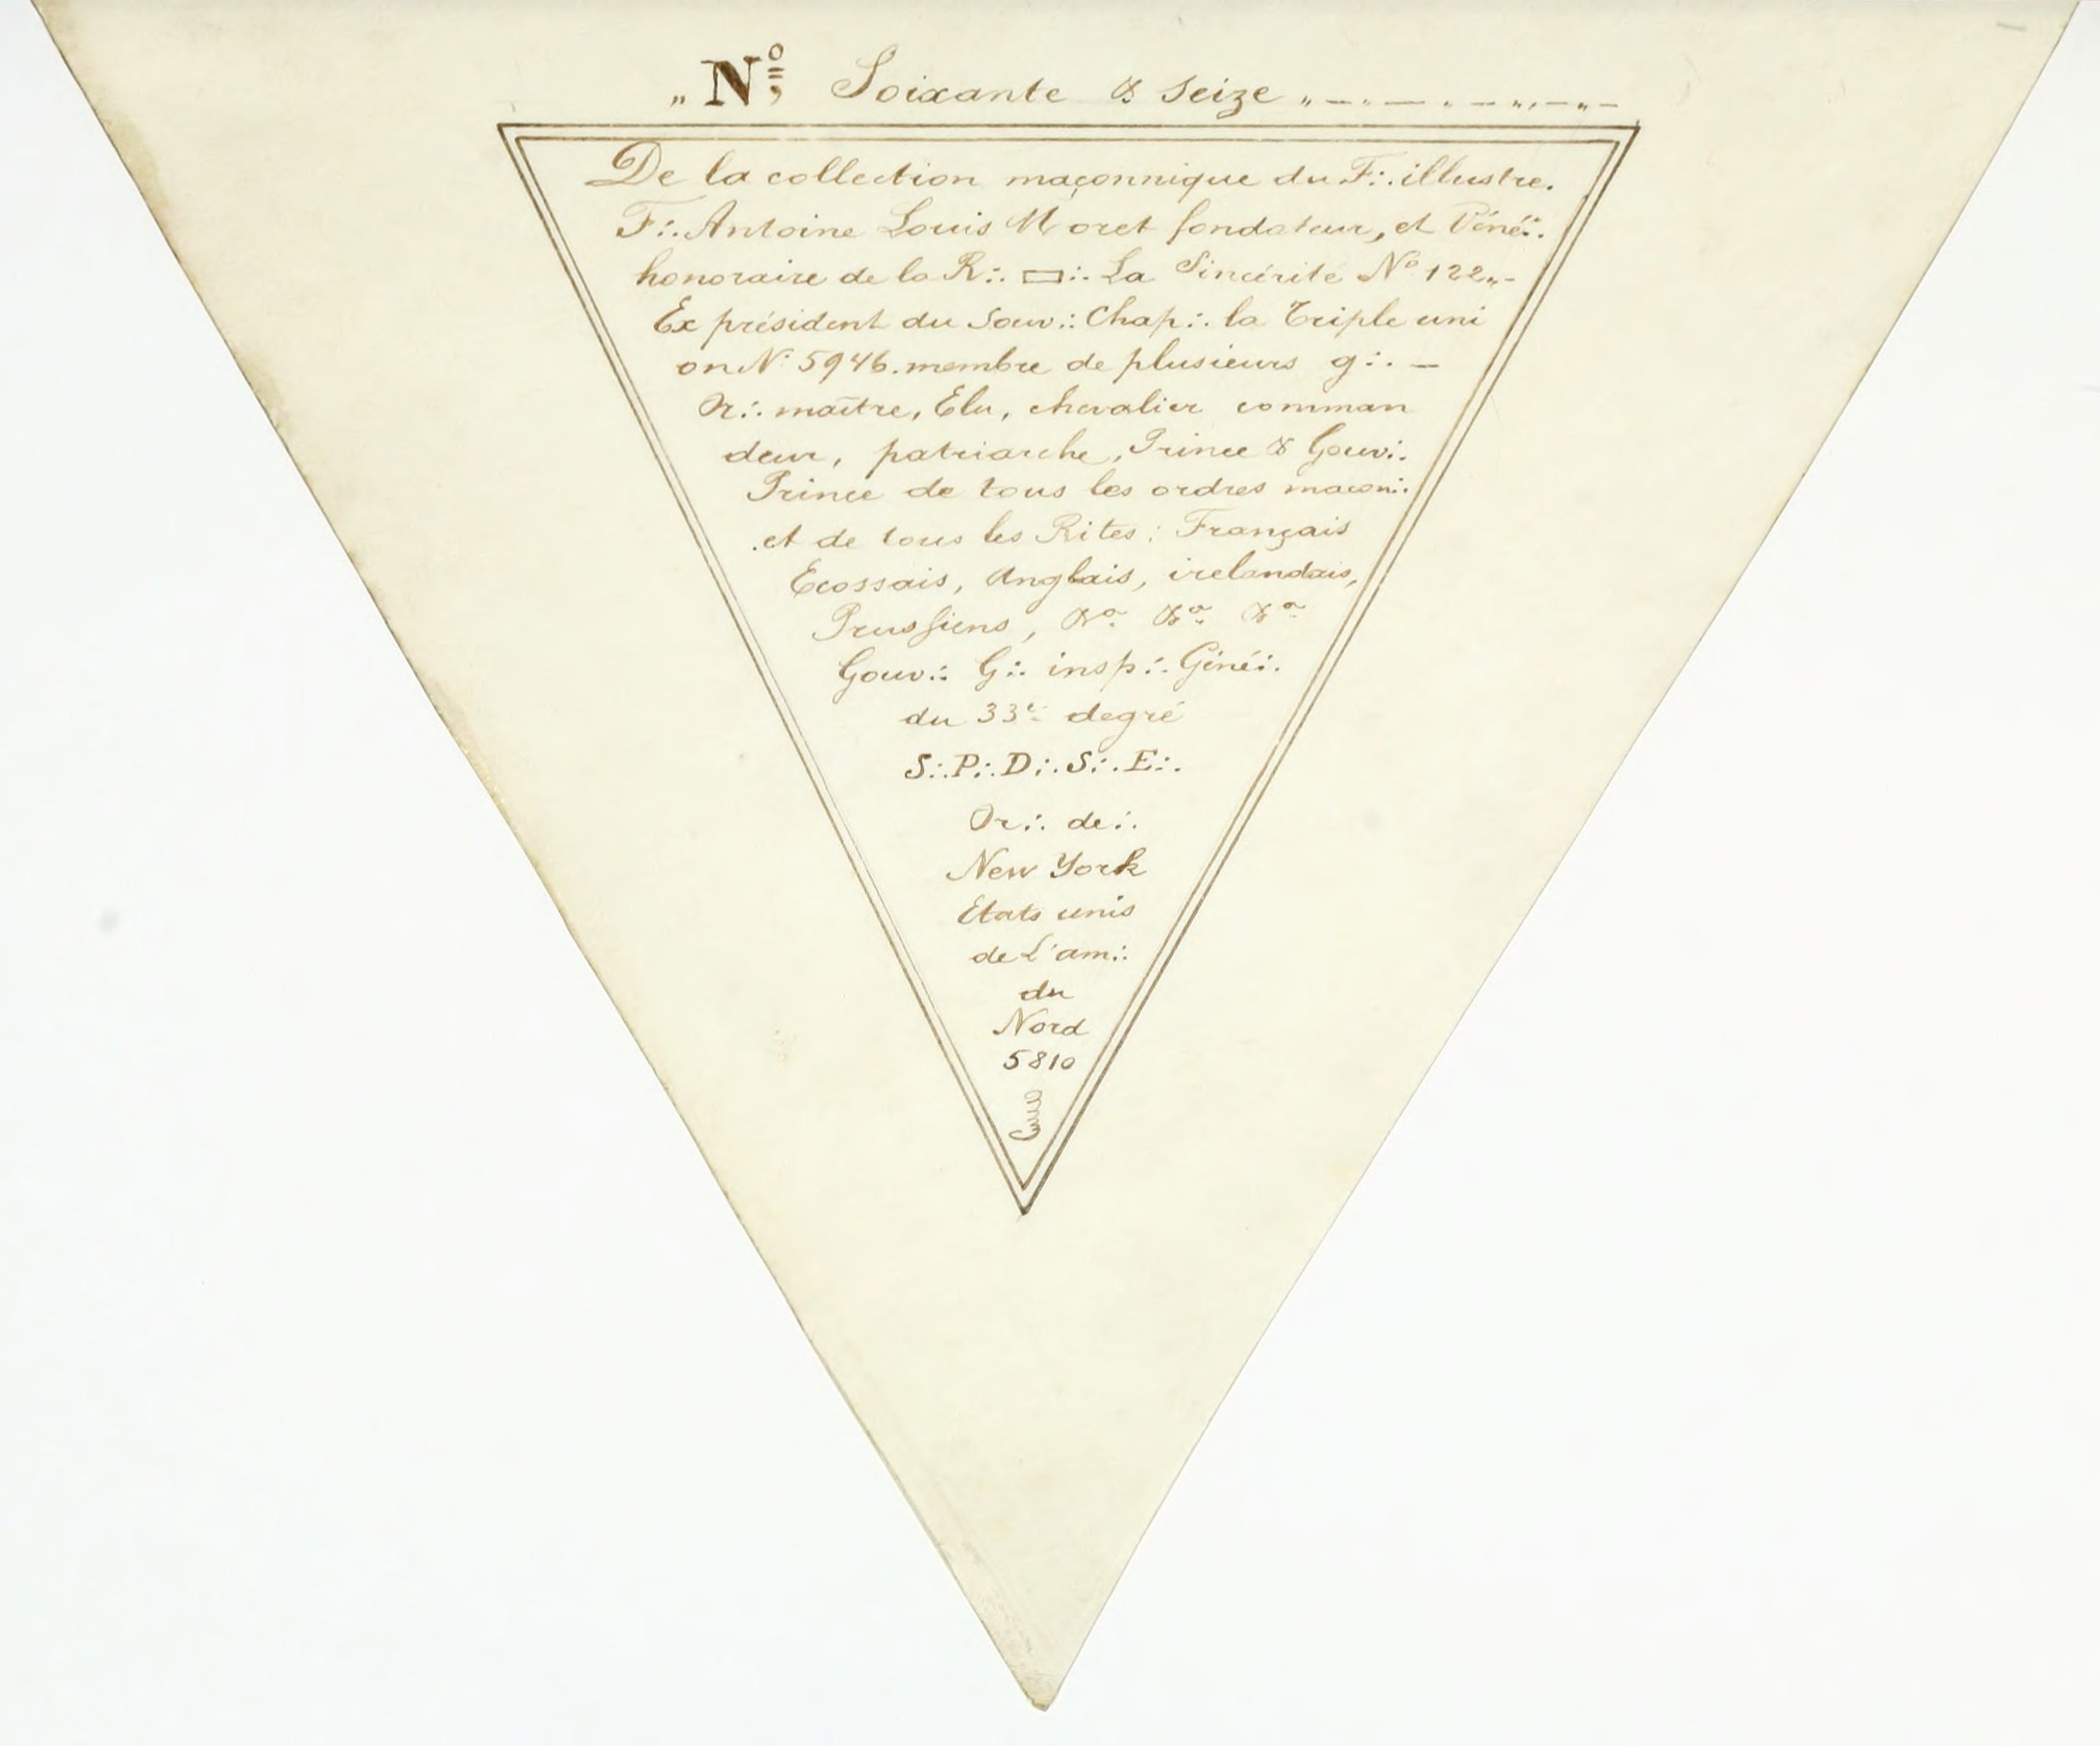 „ Nº; Soixante & Seize „ - . — . - „, — „ -
De la collection maçonnique du F∴ illustre.
F∴ Antoine Louis Moret fondateur, et Véné∴
honoraire de la R∴ ▭∴ La Sincérité Nº 122„-
Ex président du Souv∴ Chap∴ la Triple uni
on N. 5946. membre de plusieurs g∴ —
Or∴ maître, Elu, chevalier comman
deur, patriarche, Prince & Gouv∴
Prince de tous les ordres maçon∴
.et de tous les Rites; Français
Ecossais, Anglais, irelandais,
Prussiens, &a. &a. &a.
Gouv∴ G∴ insp∴ Géné∴
du 33e. degré
S∴P∴D∴S∴E∴
Or∴ de∴
New York
Etats unis
de L'am∴
du
Nord
5810